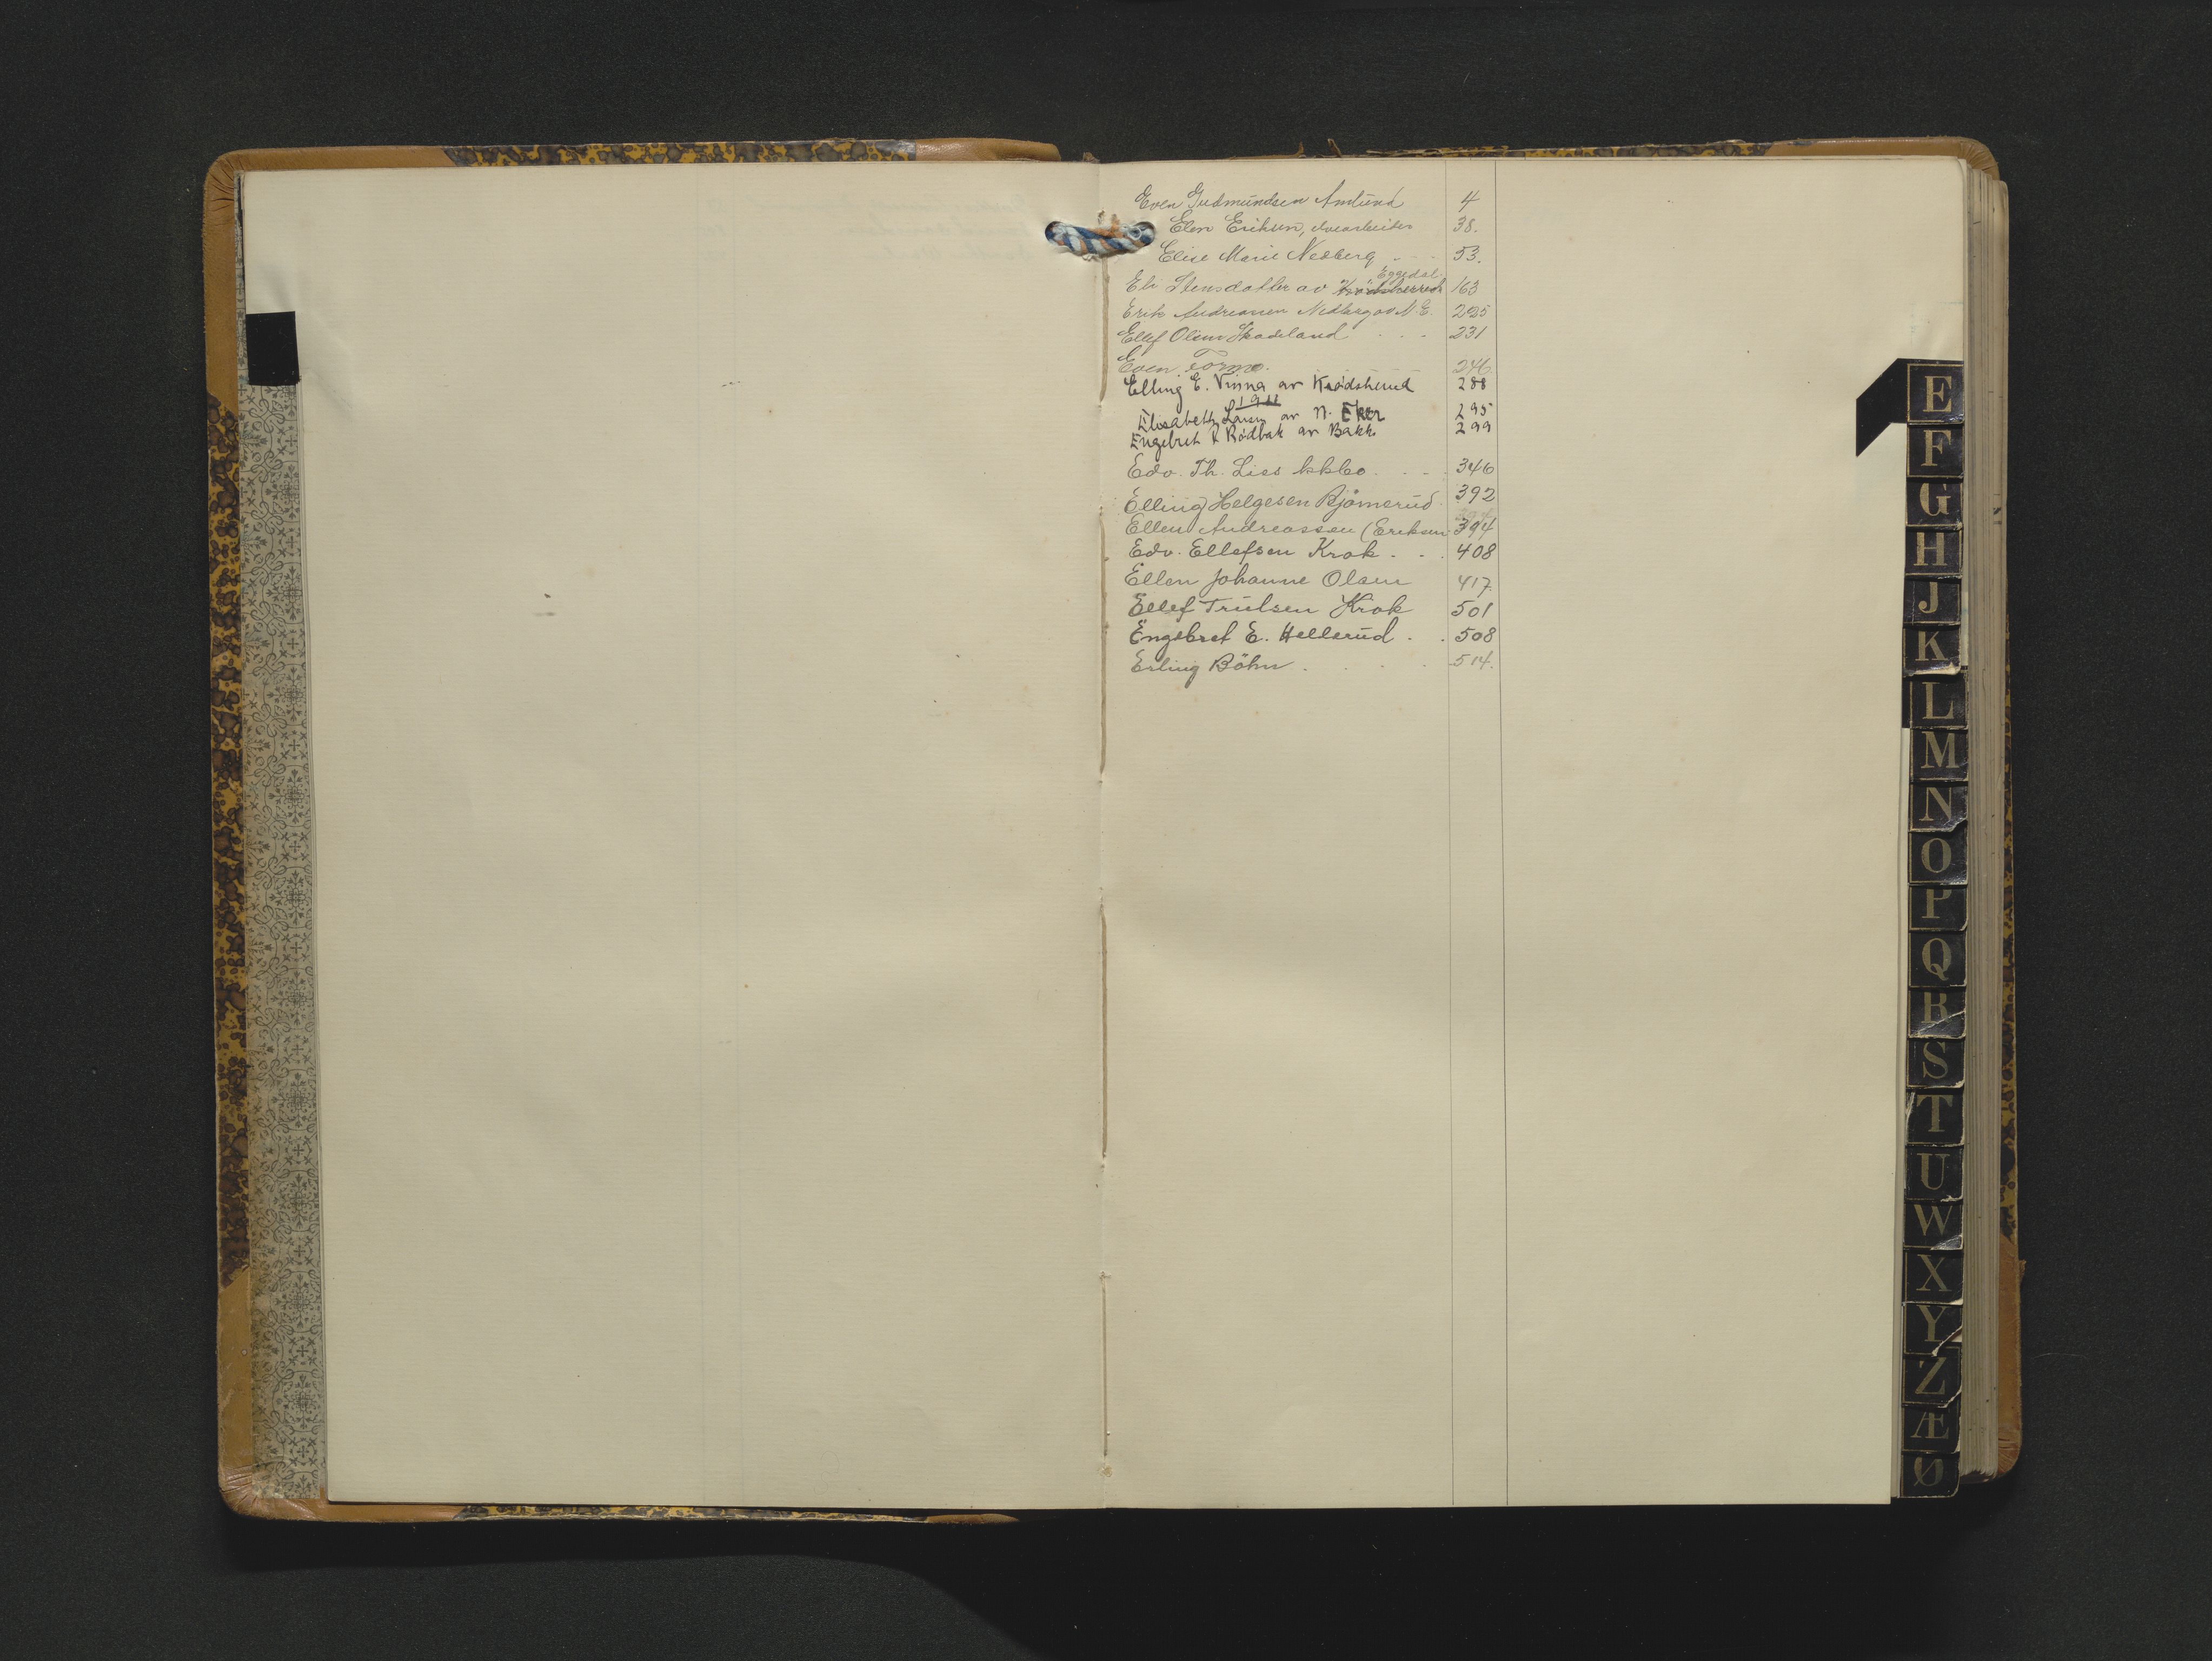 Even Gudmundsen Amlund 4
Elen Eriksen, 38.
Elise Marie Nedberg - - - 53.
Eggedal
Eli Stensdatter av Krødsherred 163
Erik Andreassen Nedberg av N. E. 225
Ellef Olsen Skadeland - - - 231
Even Tormo. 246
Elling E. Vinna av Krødsherred 288
1911
Elisabeth Larsen av N. Eker 295
Engebret R Rødbak av Bakke 299
Edv. Th. Lies kkbo. - - - 346
Elling Helgesen Bjømerud 392
Ellen Andreassen (Eriksen 394
Edv. Ellefsen Krok - - . 408
Ellen Johanne Olsen 417.
Ellef Trulsen Krok 501
Engebret E. Hellerud . . 508
Erling Böhn . . . . 514.
E
F
G
H
J
K
L
M
N
O
P
Q
R
S
T
U
W
X
Y
Z
Æ
Ø